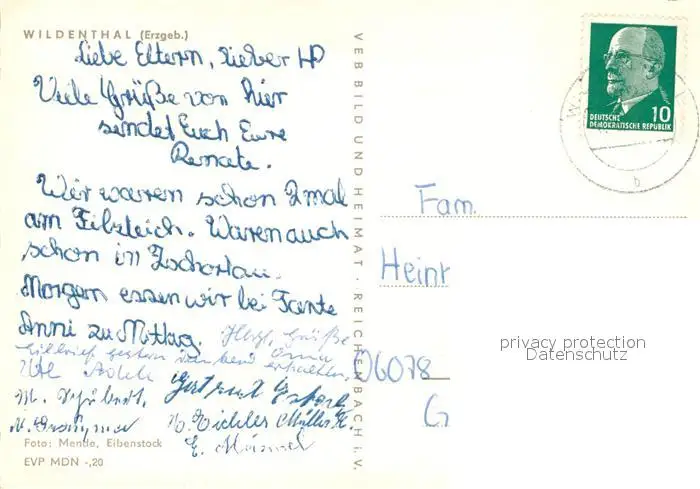 WILDENTHAL (Erzgeb.)
Liebe Eltern, lieber HP
Viele Grüße von hier
sendet Euch Eure
Renate.
Wir waren schon 2mal
am Filzteich. Waren auch
schon in Zschorlau.
Morgen essen wir bei Tante
Anni zu Mittag. Herzl. Grüße
Eilbrief gestern Oma erhalten.
M. Schubert,
Müller
E.
Foto: Mende, Eibenstock
EVP MDN -,20
VEB BILD UND HEIMAT · REICHENBACH i.V.
DEUTSCHE
DEMOKRATISCHE REPUBLIK
10
b
Fam.
Heinr
06078
G
privacy protection
Datenschutz